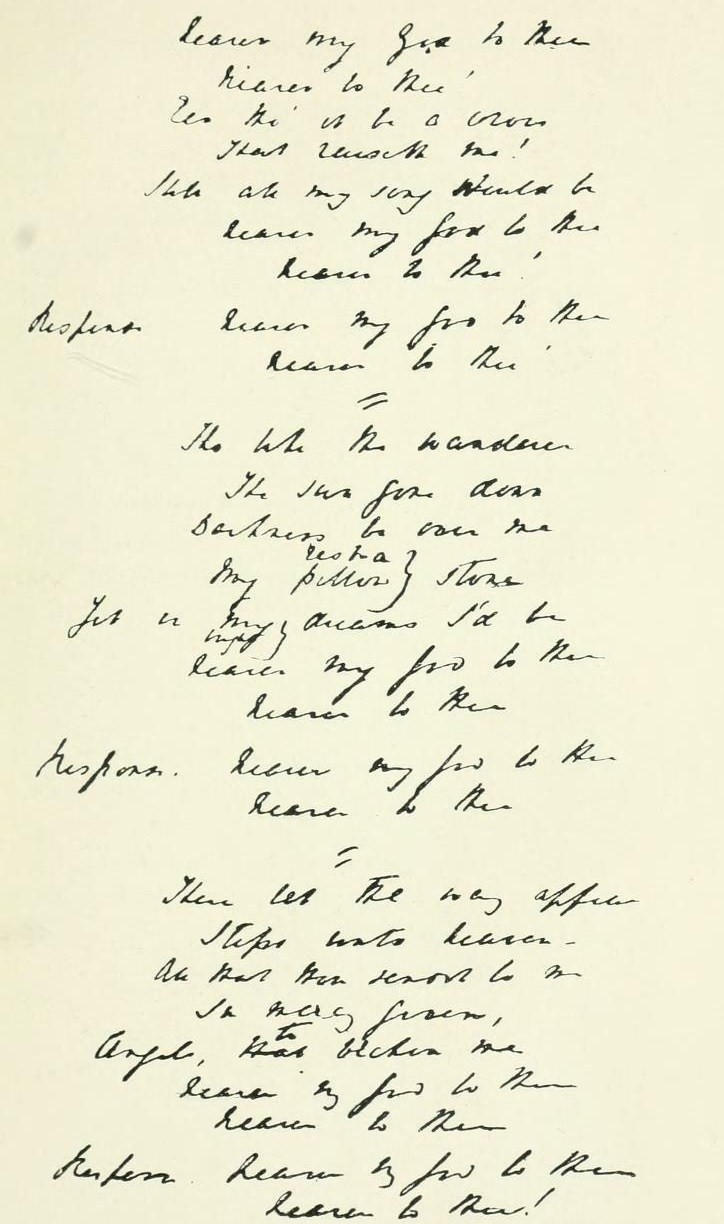 Nearer my God to thee
Nearer to thee!
Een tho' it be a cross
That raiseth me!
Still all my song would be
Nearer my God to thee
Nearer to thee!
Response Nearer my God to thee
Nearer to thee!
Tho like the wanderer
The sun gone down
Darkness be over me
rest a
My pillow } stone
Yet in my } dreams I'd be
Nearer my God to thee
Nearer to thee
Response. Nearer my God to thee
Nearer to thee
There let the way appear
Steps unto heaven -
All that thou sendst to me
In mercy given,
to
Angels, that beckon me
Nearer my God to thee
Nearer to thee
Response Nearer my God to thee
Nearer to thee!